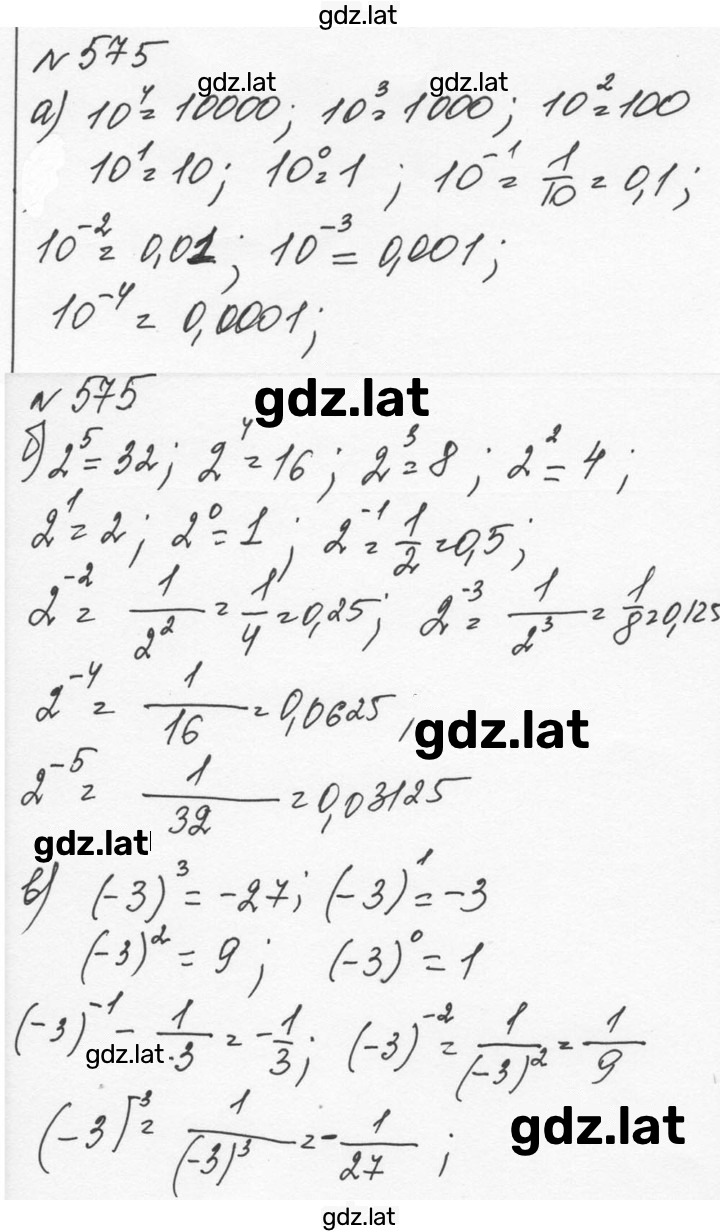 gdz.lat
№ 575
gdz.lat gdz.lat
а) 10⁴ = 10000; 10³ = 1000; 10² = 100
10¹ = 10; 10⁰ = 1; 10⁻¹ = 1/10 = 0,1;
10⁻² = 0,01; 10⁻³ = 0,001;
10⁻⁴ = 0,0001;
№ 575 gdz.lat
б) 2⁵ = 32; 2⁴ = 16; 2³ = 8; 2² = 4;
2¹ = 2; 2⁰ = 1; 2⁻¹ = 1/2 = 0,5;
2⁻² = 1/2² = 1/4 = 0,25; 2⁻³ = 1/2³ = 1/8 = 0,125
2⁻⁴ = 1/16 = 0,0625,
gdz.lat
2⁻⁵ = 1/32 = 0,03125
gdz.lat
в) (-3)³ = -27; (-3)¹ = -3
(-3)² = 9; (-3)⁰ = 1
(-3)⁻¹ - 1/-3 = -1/3; (-3)⁻² = 1/(-3)² = 1/9
gdz.lat
(-3)⁻³ = 1/(-3)³ = -1/27;
gdz.lat
gdz.lat